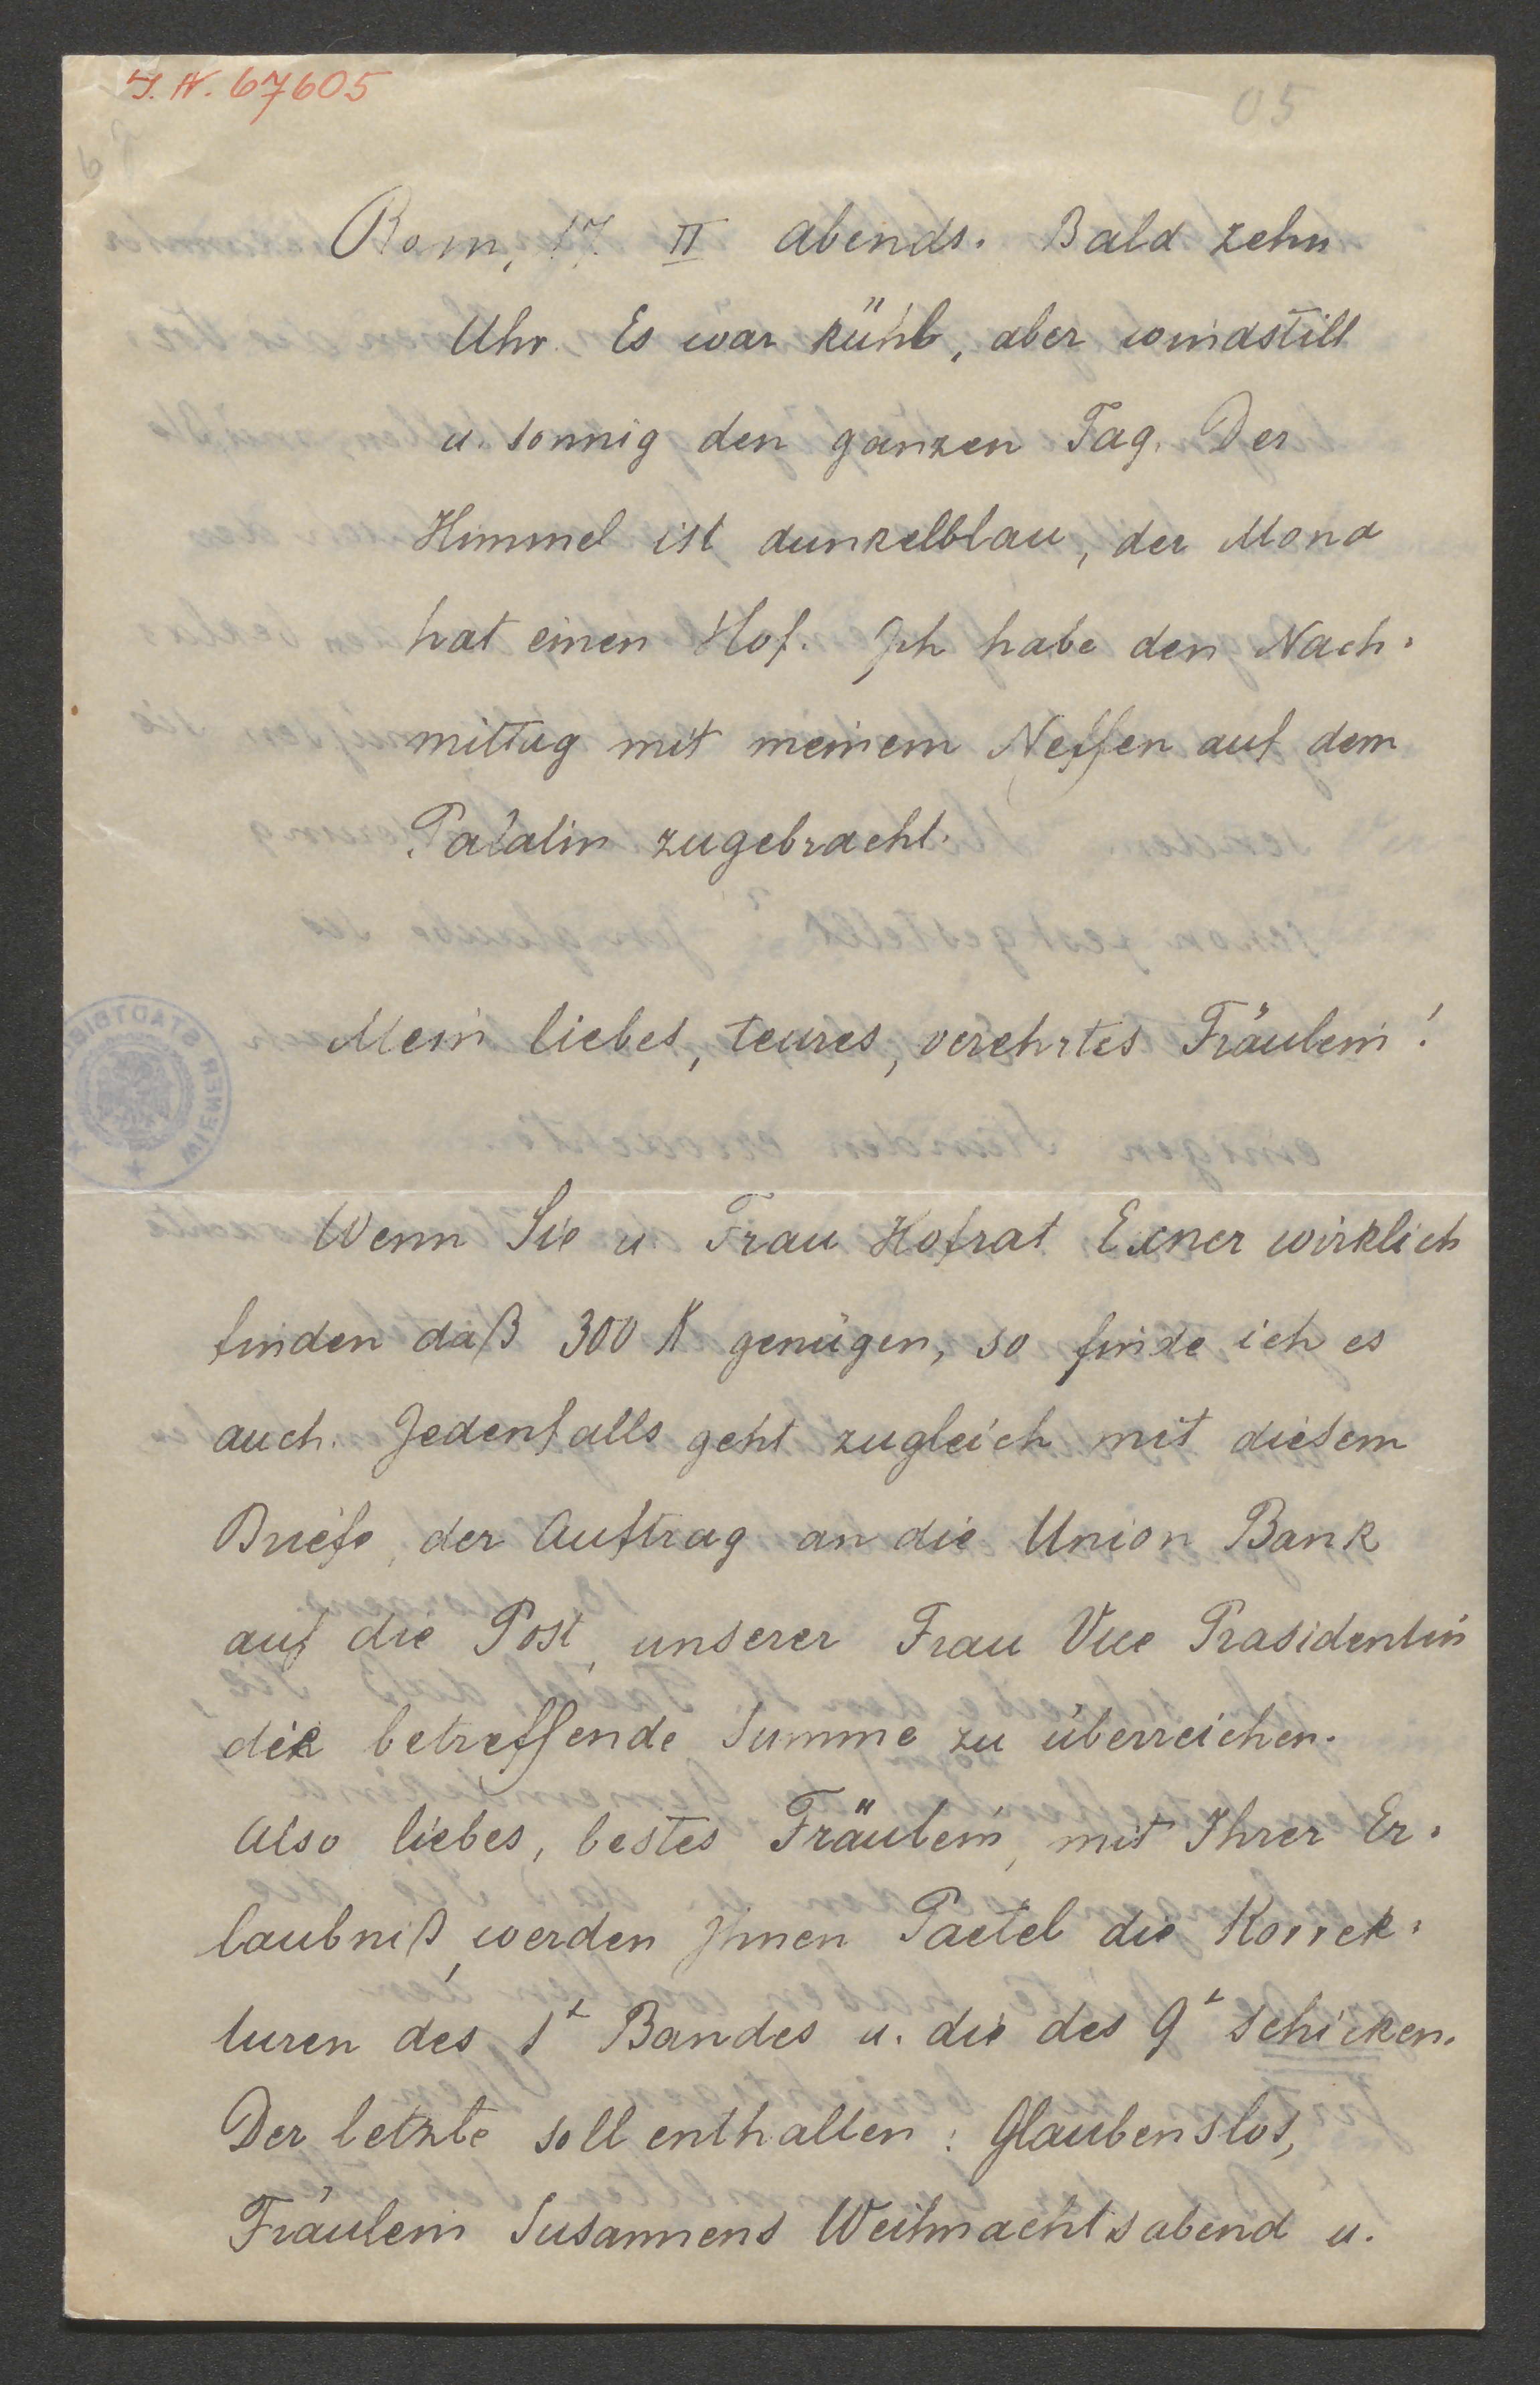 J. N. 67605
05
Rom, 17. II abends. Bald zehn
Uhr. Es war kühl, aber windstill
u. sonnig den ganzen Tag. Der
Himmel ist dunkelblau, der Mond
hat einen Hof. Ich habe den Nach-
mittag mit meinem Neffen auf dem
Palatin zugebracht.
Mein liebes, teures, verehrtes Fräulein!
WIENER STADTBIB
Wenn Sie u. Frau Hofrat Exner wirklich
finden daß 300 K genügen, so finde ich es
auch. Jedenfalls geht zugleich mit diesem
Briefe, der Auftrag an die Union Bank
auf die Post, unserer Frau Vice Präsidentin
die betreffende Summe zu überreichen.
Also liebes, bestes Fräulein, mit Ihrer Er-
laubniß, werden Ihnen Paetel die Korrek-
turen des 1t Bandes u. die des 9t schicken.
Der letzte soll enthalten: Glaubenslos,
Fräulein Susannens Weihnachtsabend u.